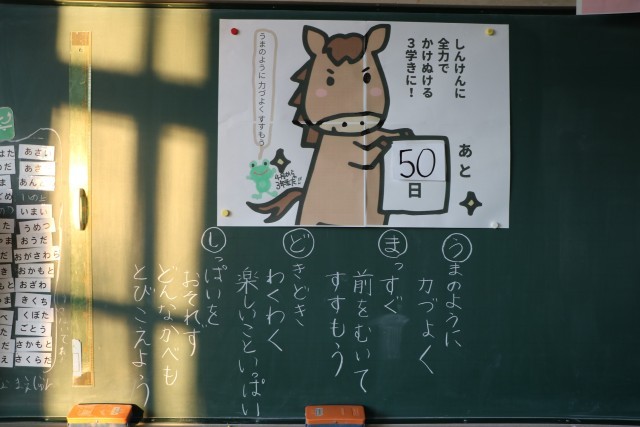 しんけんに
全力で
かけぬける
3学きに！
あと
50
日
うまのように 力づよく すすもう
4月から
3年生だ!!
うまのように
力づよく
まっすぐ
前をむいて
すすもう
どきどき
わくわく
楽しいこといっぱい
しっぱいを
おそれず
どんなかべも
とびこえよう
あさい
あさ
あん
いまい
うめつ
おうだ
おがさわら
おかもと
おざわ
きくち
くぼた
ごとう
さかもと
さくらだ